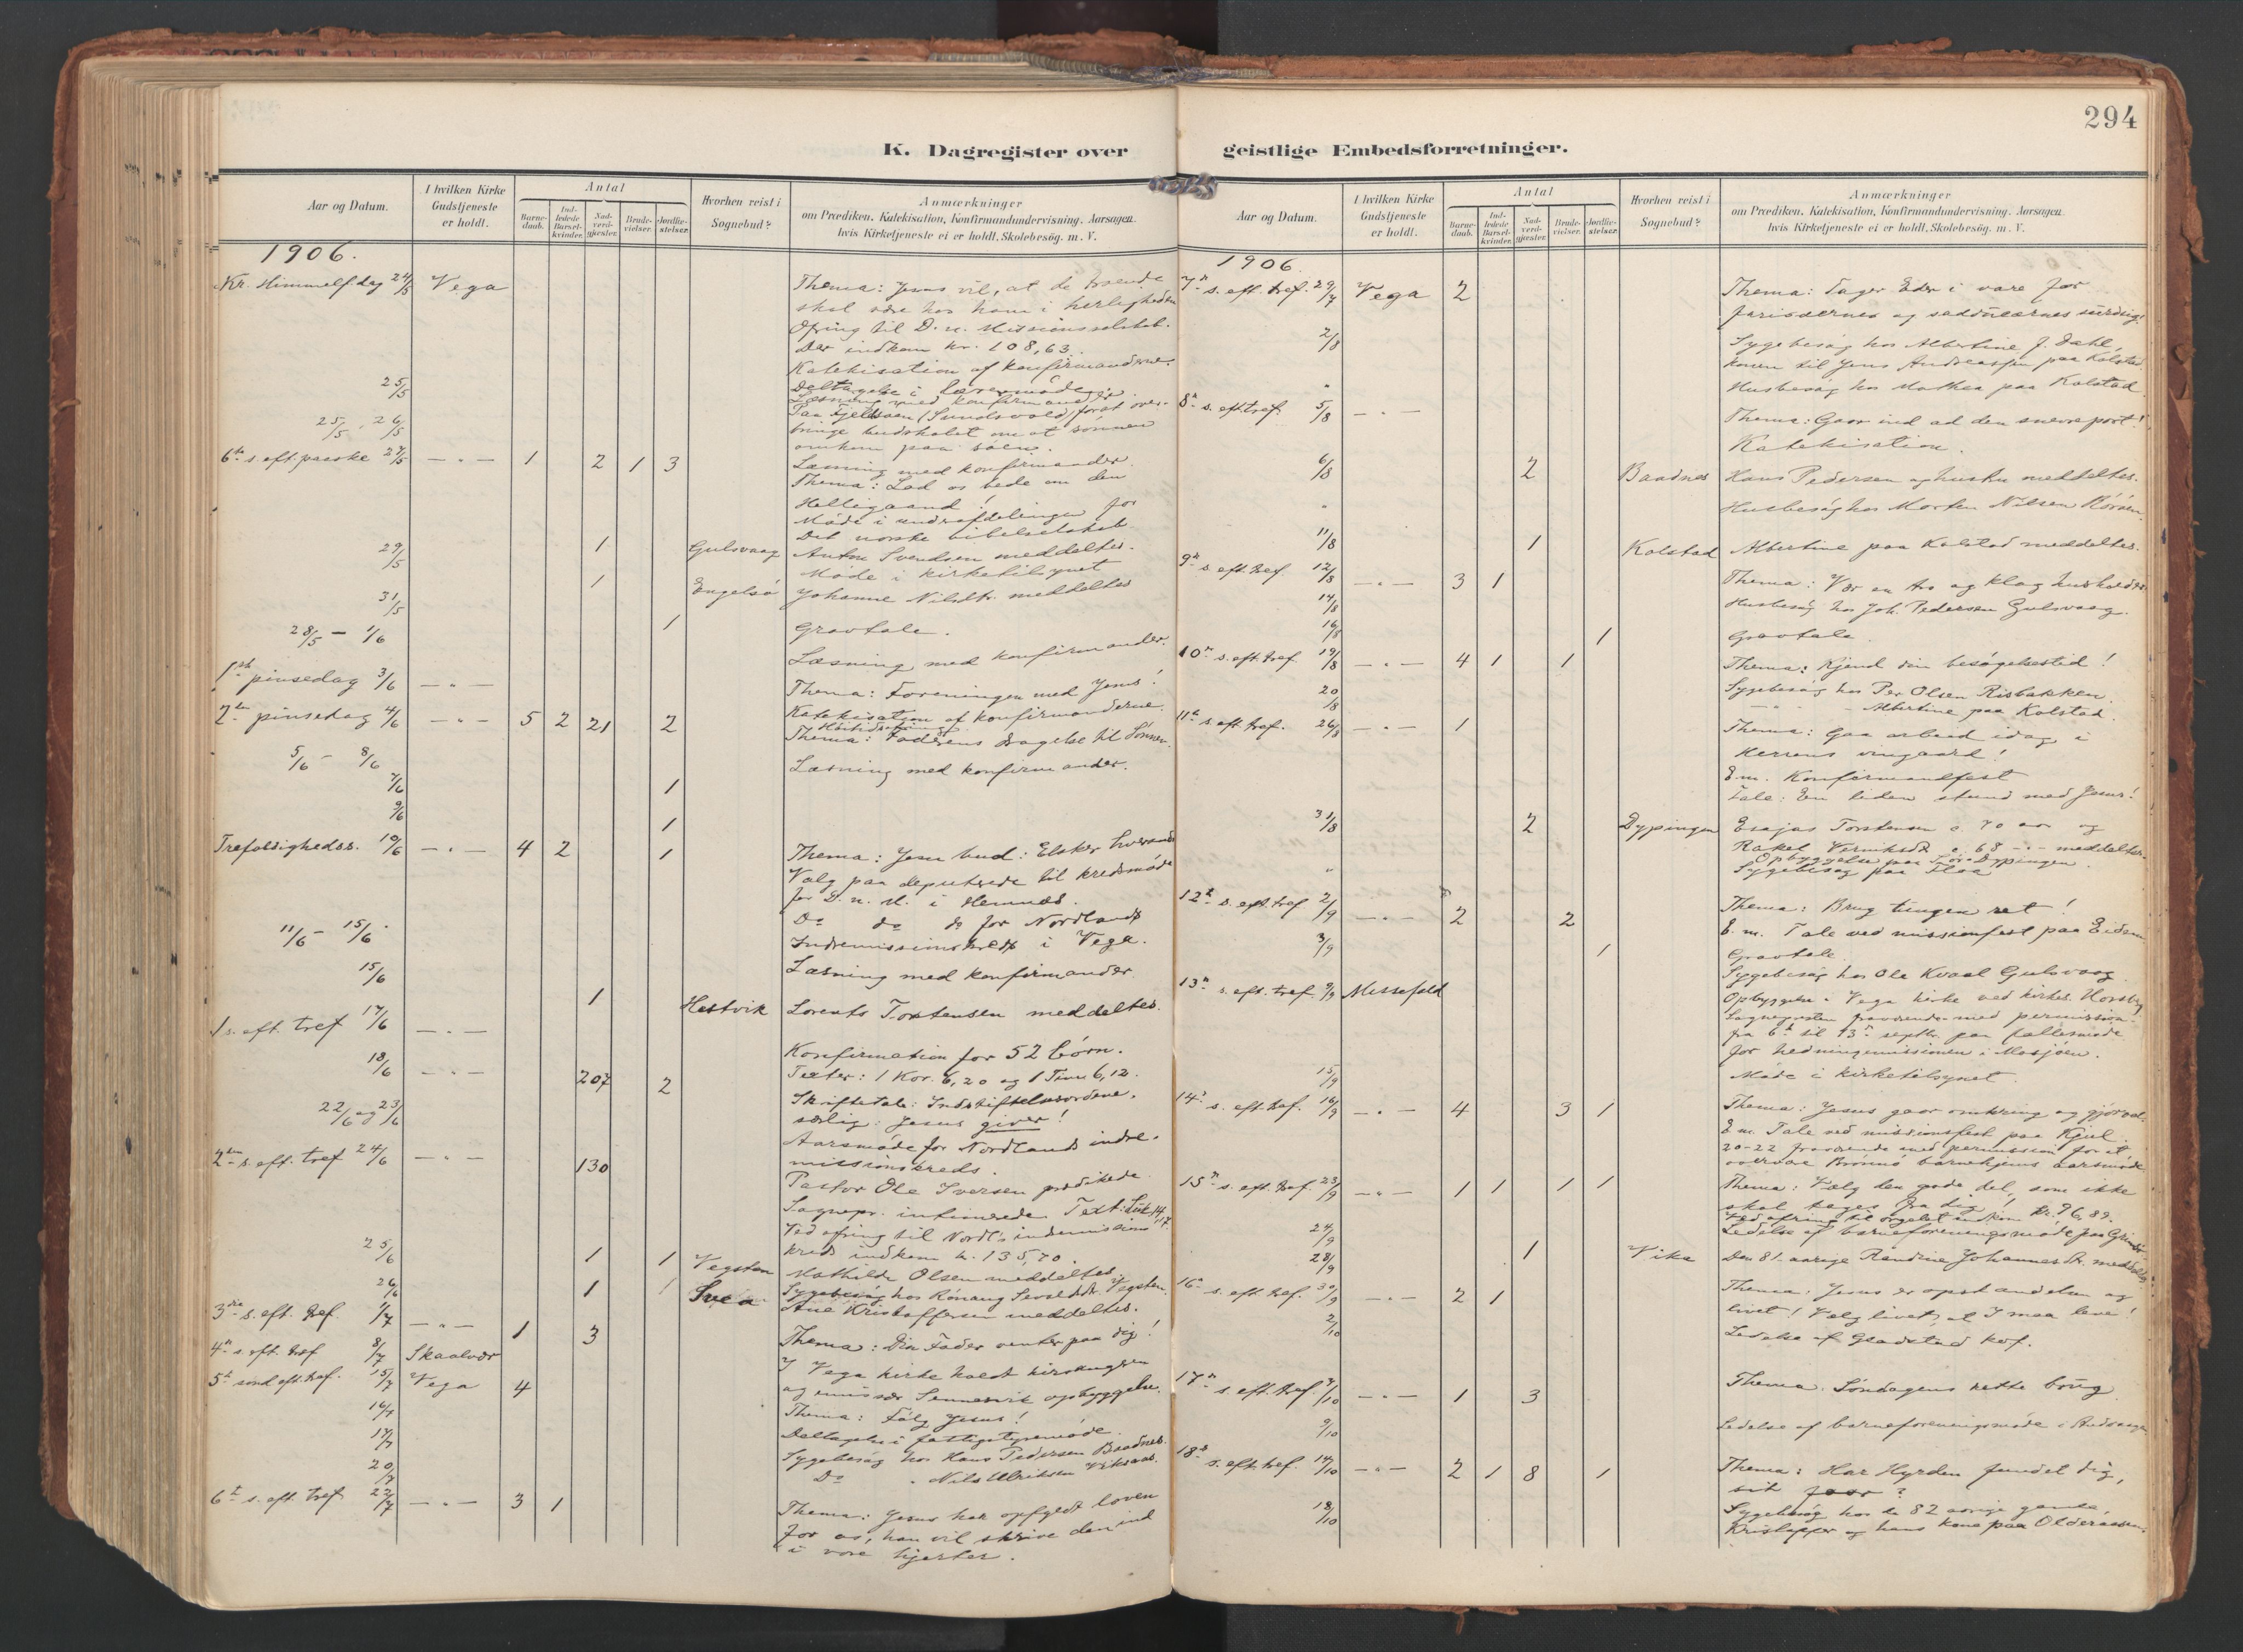 294
K. Dagregister over
Aar og Datum.
I hvilken Kirke Gudstjeneste er holdt.
Antal
Barnedaab.
Indledede Barselkvinder.
Nadverdgjester.
Brudevielser.
Jordfæstelser.
Hvorhen reist i Sognebud?
Anmærkninger
om Prædiken, Katekisation, Konfirmandundervisning, Aarsagen,
hvis Kirketjeneste ei er holdt, Skolebesøg, m. V.
1906.
Kr. Himmelf.dag 24/5 Vega Thema: Jesus vil, at de troende
skal være hos ham i herligheden
Ofring til D. n. Missionsselskab.
Der indkom kr. 108,63.
Katekisation af konfirmanderne.
25/5 Deltagelse i
Læsning med konfirmander
25/5 - 26/5 Paa Fjeldvær (Sundsvold) for at overbringe budskabet om at sønnen
omkom paa søen.
6te s. eft. paaske 27/5 — " — 1 2 1 3 Læsning med konfirmander.
Thema: Lad os bede om den
Helligaand!
Møde i underafdelingen for
Det norske bibelselskab.
29/5 1 Gulsvaag Anton Svendsen meddeltes.
Møde i kirketilsynet
31/5 1 Engelsø Johanne Nilsdtr. meddeltes
28/5 — 1/6 1 Gravtale.
Læsning med konfirmander.
1ste pinsedag 3/6 — " — Thema: Foreningen med Jesus!
Katekisation af konfirmanderne.
2den pinsedag 4/6 — " — 5 2 21 2 Thema: Faderens dragelse til Sønnen.
5/6 — 8/6 Læsning med konfirmander.
7/6 1
9/6 1
Trefoldighedss. 10/6 — " — 4 2 1 Thema: Jesu bud: Elsker hverandre
Valg paa deputerede til kredsmøde
for D. n. M. i Hemnes.
Do do do for Nordlands
Indremissionskreds i Vega.
11/6 — 15/6 Læsning med konfirmander
15/6 1 Hestvik Lorents Torstensen meddeltes.
1 s. eft. tref 17/6 — " — Konfirmation for 52 børn.
Texter: 1 Kor. 6,20 og 1 Tim 6,12.
18/6 — " — 207 2 Skriftetale: Indstiftelsesordene.
særlig: Jesus giver!
22/6 og 23/6 Aarsmøde for Nordlands indremissionskreds.
2den s. eft. tref 24/6 — " — 130 Pastor Ole Iversen prædikede
Sognepr. intimerede Text: Luk 14, 17.
Ved ofring til Nordl's indremissionskreds indkom kr. 135,70.
25/6 1 1 Vegsten Mathilde Olsen meddeltes.
Sygebesøg hos Rønnaug Vegsten.
26/6 1 1 Svea Ane Kristoffersen meddeltes.
3die s. eft. tref. 1/7 — " — 1 3 Thema: Din Fader venter paa dig!
4de s. eft. tref 8/7 Skaalvær I Vega kirke holdt kirkesangeren
og emissær Sennesvik opbyggelse.
5te sönd eft. tref. 15/7 Vega 4 Thema: Følg Jesus!
16/7 Deltagelse i fattigstyremøde.
17/7 Sygebesøg hos Hans Pedersen Baadnes.
20/7 Do " Nils Ulriksen Viksaas.
6te s. eft. tref. 22/7 — " — 3 1 Thema: Jesus har opfyldt loven
for os, han vil skrive den ind
i vore hjerter.
geistlige Embedsforretninger.
Aar og Datum.
I hvilken Kirke Gudstjeneste er holdt.
Antal
Barnedaab.
Indledede Barselkvinder.
Nadverdgjester.
Brudevielser.
Jordfæstelser.
Hvorhen reist i Sognebud?
Anmærkninger
om Prædiken, Katekisation, Konfirmandundervisning, Aarsagen,
hvis Kirketjeneste ei er holdt, Skolebesøg, m. V.
1906.
7de s. eft. tref. 29/7 Vega 2 Thema: Tager Eder i vare for
farisæernes og saddúcæernes surdeig!
2/8 Sygebesøg hos Albertine J. Dahl,
konen til Jens Andreassen paa Kolstad
" Husbesøg hos Mathea paa Kolstad
8de s. eft. tref. 5/8 — " — Thema: Gaar ind ad den snevre port!
Katekisation.
6/8 2 Baadnes Hans Pedersen og hustru meddeltes.
" Husbesøg hos Morten Nilsen Rörøen.
11/8 1 Kolstad Albertine paa Kolstad meddeltes.
9de s. eft. tref. 12/8 — " — 3 1 Thema: Vær en tro og klog husholder
14/8 Husbesøg hos Joh. Pedersen Gulsvaag.
16/8 1 Gravtale
10de s. eft. tref. 19/8 — " — 4 1 1 Thema: Kjend din besøgelsestid!
20/8 Sygebesøg hos Per Olsen Risbakken.
- " - Albertine paa Kolstad.
11te s. eft. tref. 26/8 — " — 1 Thema: Gaa arbeid idag i
Herrens vingaard!
E.m. Konfirmandfest
Tale: En liden stund med Jesus!
31/8 2 Dypingen Esajas Torstensen c. 70 aar og
Rakel c. 68 - " - meddeltes.
Opbyggelse paa Dypingen.
" Sygebesøg paa Floa
12te s. eft. tref 2/9 — " — 2 2 Thema: Brug tungen ret!
E. m. Tale ved missionsfest paa Eidem
3/9 1 Gravtale.
Sygebesøg hos Ole Kvaal Gulsvaag.
13de s. eft. tref. 9/9 Missefeld Opbyggelse i Vega kirke ved kirkes. Horsberg
Sognepresten fraværende med permission
fra 6te til 13de septbr. paa fællesmøde
for hedningemissionen i Mosjøen.
15/9 Møde i kirketilsynet.
14de s. eft. tref. 16/9 — " — 4 3 1 Thema: Jesus gaar omkring og gjør vel.
E.m. Tale ved missionsfest paa Kjul.
20-22 fraværende med permission for at
overvære Brønnø barnehjems aarsmøde
15de s. eft. tref. 23/9 — " — 1 1 1 1 Thema: Vælg den gode del, som ikke
skal tages fra dig!
Ved ofring til orgelet indkom kr. 96,89.
24/9 Ledelse af barneforeningsmøde paa
28/9 1 Vika Den 81-aarige Randine Johannesdtr. meddeltes
16de s. eft. tref. 30/9 — " — 2 1 Thema: Jesus er opstandelsen og
livet! Vælg livet, at I maa leve!
2/10 Ledelse af Gladstad kvf.
17de s. eft. tref. 7/10 — " — 1 3 Thema: Søndagens rette brúg
9/10 Ledelse af barneforeningsmøde i
18de s. eft. tref. 14/10 — " — 2 1 8 1 Thema: Har Hyrden fundet dig,
sit faar?
18/10 Sygebesøg hos de 82 aarige gamle,
Kristoffer og hans kone paa Olderaasen.